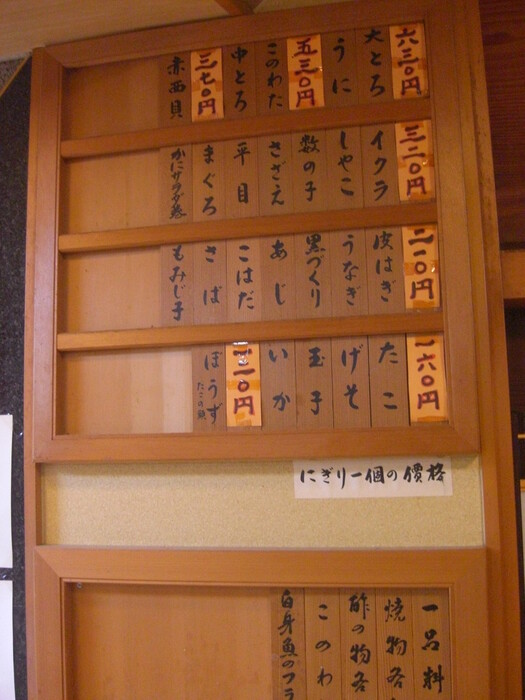 六三〇円
大とろ
うに
五三〇円
このわた
中とろ
三七〇円
赤西貝
三二〇円
イクラ
しゃこ
数の子
さざえ
平目
まぐろ
かにサラダ巻
二一〇円
皮はぎ
うなぎ
黒づくり
あじ
こはだ
さば
もみじ子
一六〇円
たこ
げそ
玉子
いか
一一〇円
ぼうず
たこの頭
にぎり一個の價格
一品料
焼物各
酢の物各
このわ
白身魚のフラ